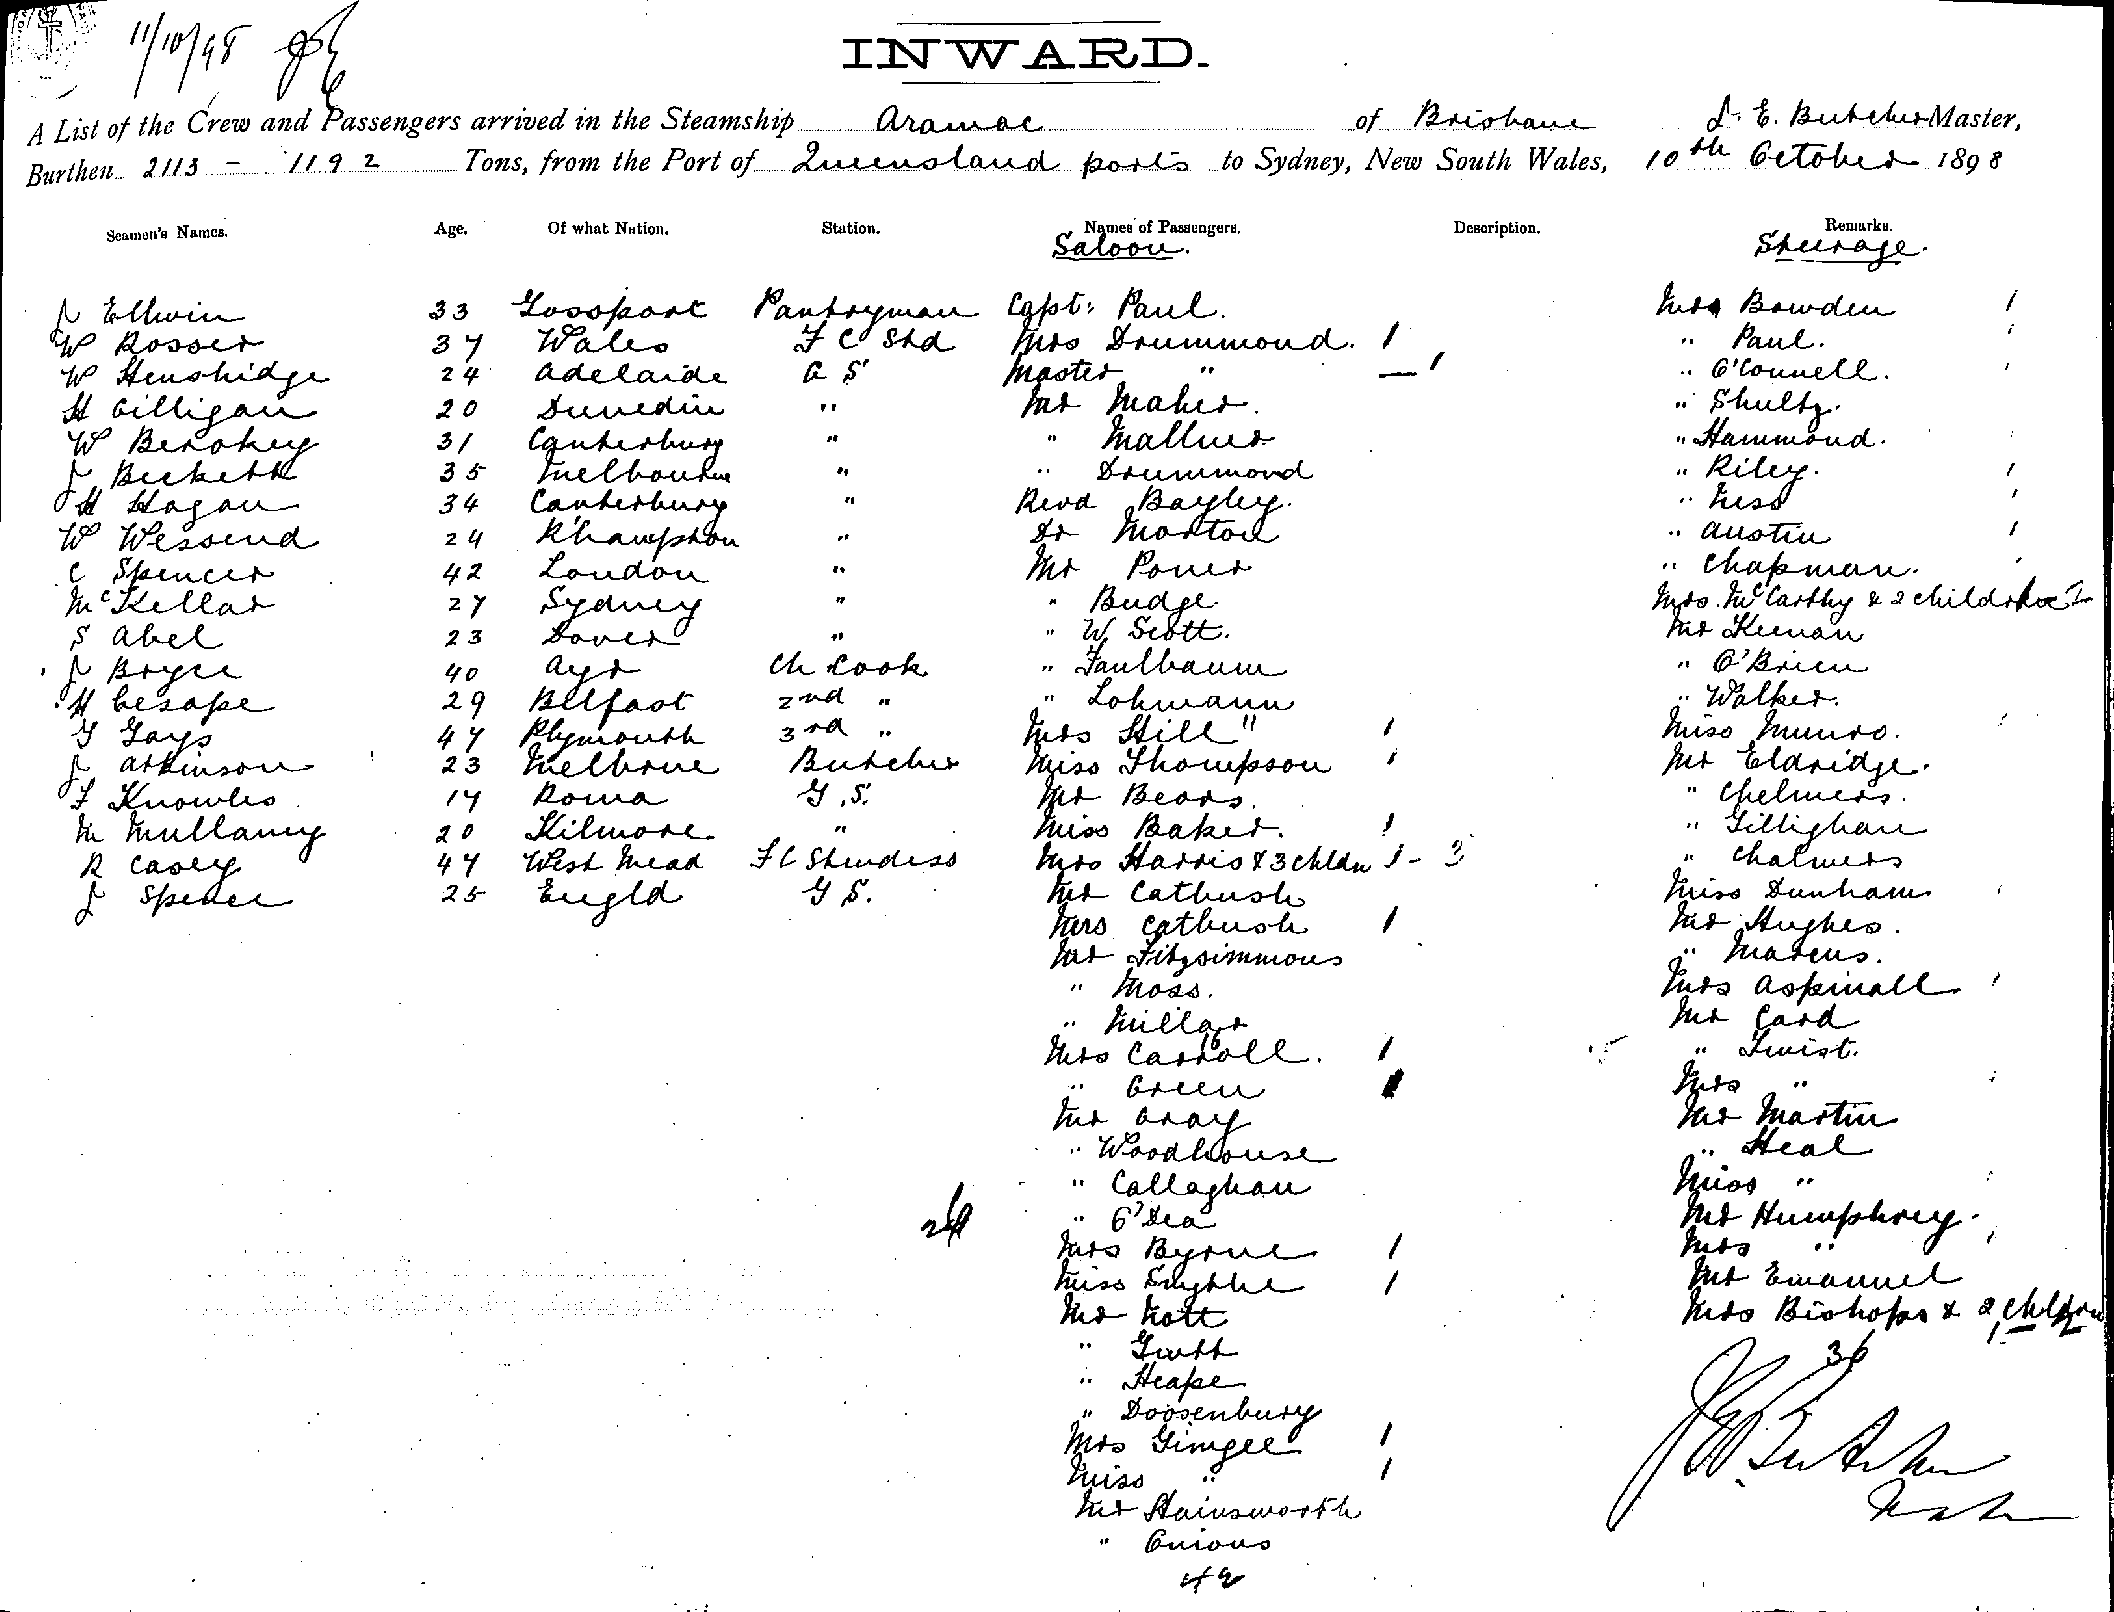 11/10/98
INWARD.
A List of the Crew and Passengers arrived in the Steamship Aramac of Brisbane J. E. Butcher Master,
Burthen 2113 - 1192 Tons, from the Port of Queensland ports to Sydney, New South Wales, 10th October 1898
Seamen's Names. Age. Of what Nation. Station. Names of Passengers. Description. Remarks.
Saloon. Steerage.
J Ellwin 33 Gossport Pantryman Capt: Paul. Mrs Bowden 1
W Rosser 37 Wales F C Std Mrs Drummond. 1 " Paul. 1
W Henshidge 24 Adelaide G S Master " — 1 " O'Connell. 1
H Gilligan 20 Dunedin " Mr Maher. " Shultz.
W Berokey 31 Canterbury " " Mallner " Hammond.
J Beckett 35 Melbourne " " Drummond " Riley. 1
H Hogan 34 Canterbury " Revd Bayley. " Ness 1
W Wessend 24 R'hampton " Dr Morton " Austin 1
C Spencer 42 London " Mr Power " Chapman.
McKellar 27 Sydney " " Budge Mrs. McCarthy & 2 children
S Abel 23 Dover " " W Scott. Mr Keenan
J Bryce 40 Ayr Ch Cook " Faulbaum " O'Brien
H 29 Belfast 2nd " " Lohmann " Walker.
G Gays 47 Plymouth 3rd " Mrs Hill " 1 Miss Munro.
J Atkinson 23 Melbrne Butcher Miss Thompson 1 Mr Eldridge.
F Knowles 17 Roma G.S. Mr Bears. " Chelmers.
M Mullaney 20 Kilmore " Miss Baker. 1 " Gillighan
R Casey 47 West Mead F C Stewdess Mrs Harris & 3 chldn 1 - 3 " Chalmers
J Spencer 25 Engld G S. Mr Catbush Miss Dunham
Mrs Catbush 1 Mr Hughes.
Mr Fitzsimmons " Marcus.
" Moss. Mrs Aspinall 1
" Millar Mr Card
Mrs Carroll. 1 " Twist.
" Green 1 Mrs "
Mr Gray Mr Martin
" Woodhouse " Heal
" Callaghan Miss "
" O'Dea Mr Humphrey.
Mrs Byrne 1 Mrs "
Miss Smythe 1 Mr Emanuel
Mr Nott Mrs Bishops & 2 chldren
" Gutt 36
" Heape
" Doosenbury
Mrs Gimgee 1
Miss " 1
Mr Hainsworth
" Onions
42
J E Butcher
Master